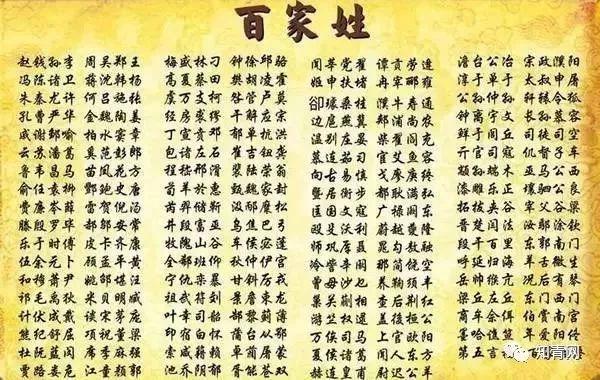 百家姓
赵钱孙李 周吴郑王
冯陈诸卫 蒋沈韩杨
朱秦尤许 何吕施张
孔曹严华 金魏陶姜
戚谢邹喻 柏水窦章
云苏潘葛 奚范彭郎
鲁韦昌马 苗凤花方
俞任袁柳 酆鲍史唐
费廉岑薛 雷贺倪汤
滕殷罗毕 郝邬安常
乐于时傅 皮卞齐康
伍余元卜 顾孟平黄
和穆萧尹 姚邵湛汪
祁毛禹狄 米贝明臧
计伏成戴 谈宋茅庞
熊纪舒屈 项祝董梁
杜阮蓝闵 席季麻强
贾路娄危 江童颜郭
梅盛林刁 钟徐邱骆
高夏蔡田 樊胡凌霍
虞万支柯 昝管卢莫
经房裘缪 干解应宗
丁宣贲邓 郁单杭洪
包诸左石 崔吉钮龚
程嵇邢滑 裴陆荣翁
荀羊於惠 甄魏家封
芮羿储靳 汲邴糜松
井段富巫 乌焦巴弓
牧隗山谷 车侯宓蓬
全郗班仰 秋仲伊宫
宁仇栾暴 甘钭厉戎
祖武符刘 景詹束龙
叶幸司韶 郜黎蓟薄
印宿白怀 蒲邰从鄂
索咸籍赖 卓蔺屠蒙
闻莘党翟 谭贡劳逄
姬申扶堵 冉宰郦雍
郤璩桑桂 濮牛寿通
边扈燕冀 郏浦尚农
温别庄晏 柴瞿阎充
慕连茹习 宦艾鱼容
向古易慎 戈廖庾终
暨居衡步 都耿满弘
匡国文寇 广禄阙东
欧殳沃利 蔚越夔隆
师巩厍聂 晁勾敖融
冷訾辛阚 那简饶空
曾毋沙乜 养鞠须丰
巢关蒯相 查后荆红
游竺权逯 盖益桓公
万俟司马 上官欧阳
夏侯诸葛 闻人东方
澹台公冶 宗政濮阳
淳于单于 太叔申屠
公孙仲孙 轩辕令狐
钟离宇文 长孙慕容
鲜于闾丘 司徒司空
亓官司寇 仉督子车
颛孙端木 巫马公西
漆雕乐正 壤驷公良
拓跋夹谷 宰父谷梁
晋楚闫法 汝鄢涂钦
段干百里 东郭南门
呼延归海 羊舌微生
岳帅缑亢 况后有琴
梁丘左丘 东门西门
商牟佘佴 伯赏南宫
墨哈谯笪 年爱阳佟
第五言福
知青网